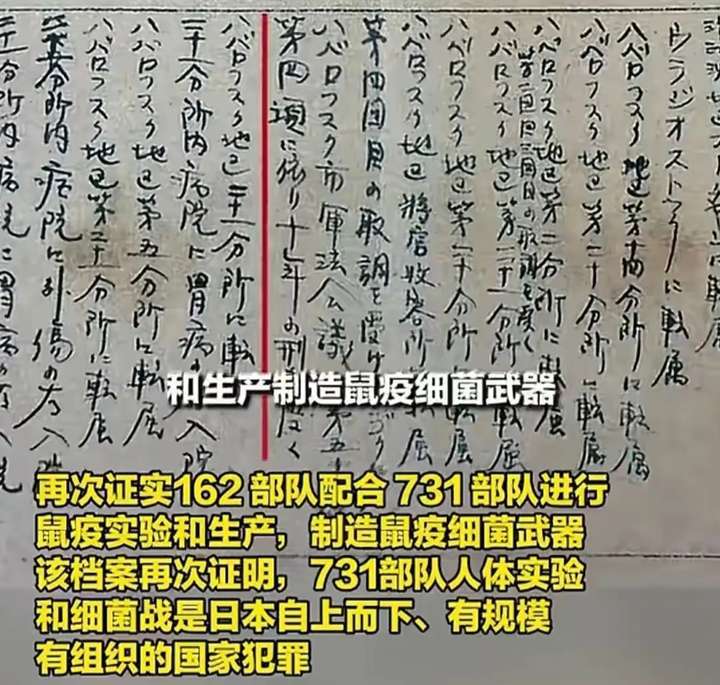 ウラジオストックに転属
ハバロフスク地区第十四分所に転属
ハバロフスク地区第二十分所に転属
ハバロフスク地区第二分所に転属
第一回目二回目の取調を受く
ハバロフスク地区第二十一分所に転属
ハバロフスク地区第二十分所に転属
ハバロフスク地区将官収容所に転属
第四回目の取調を受け
ハバロフスク市軍法会議 第五
第四項に依り十 年の刑 受く
ハバロフスク地区二十一分所に転
二十一分所内病院に胃病 入院
ハバロフスク地区第五分所に転属
ハバロフスク地区第二十一分所に転属
分所内病院に外傷の為入院
二十一分所内病院に胃病の為入院
和生产制造鼠疫细菌武器
再次证实162 部队配合 731 部队进行
鼠疫实验和生产，制造鼠疫细菌武器
该档案再次证明，731部队人体实验
和细菌战是日本自上而下、有规模
有组织的国家犯罪